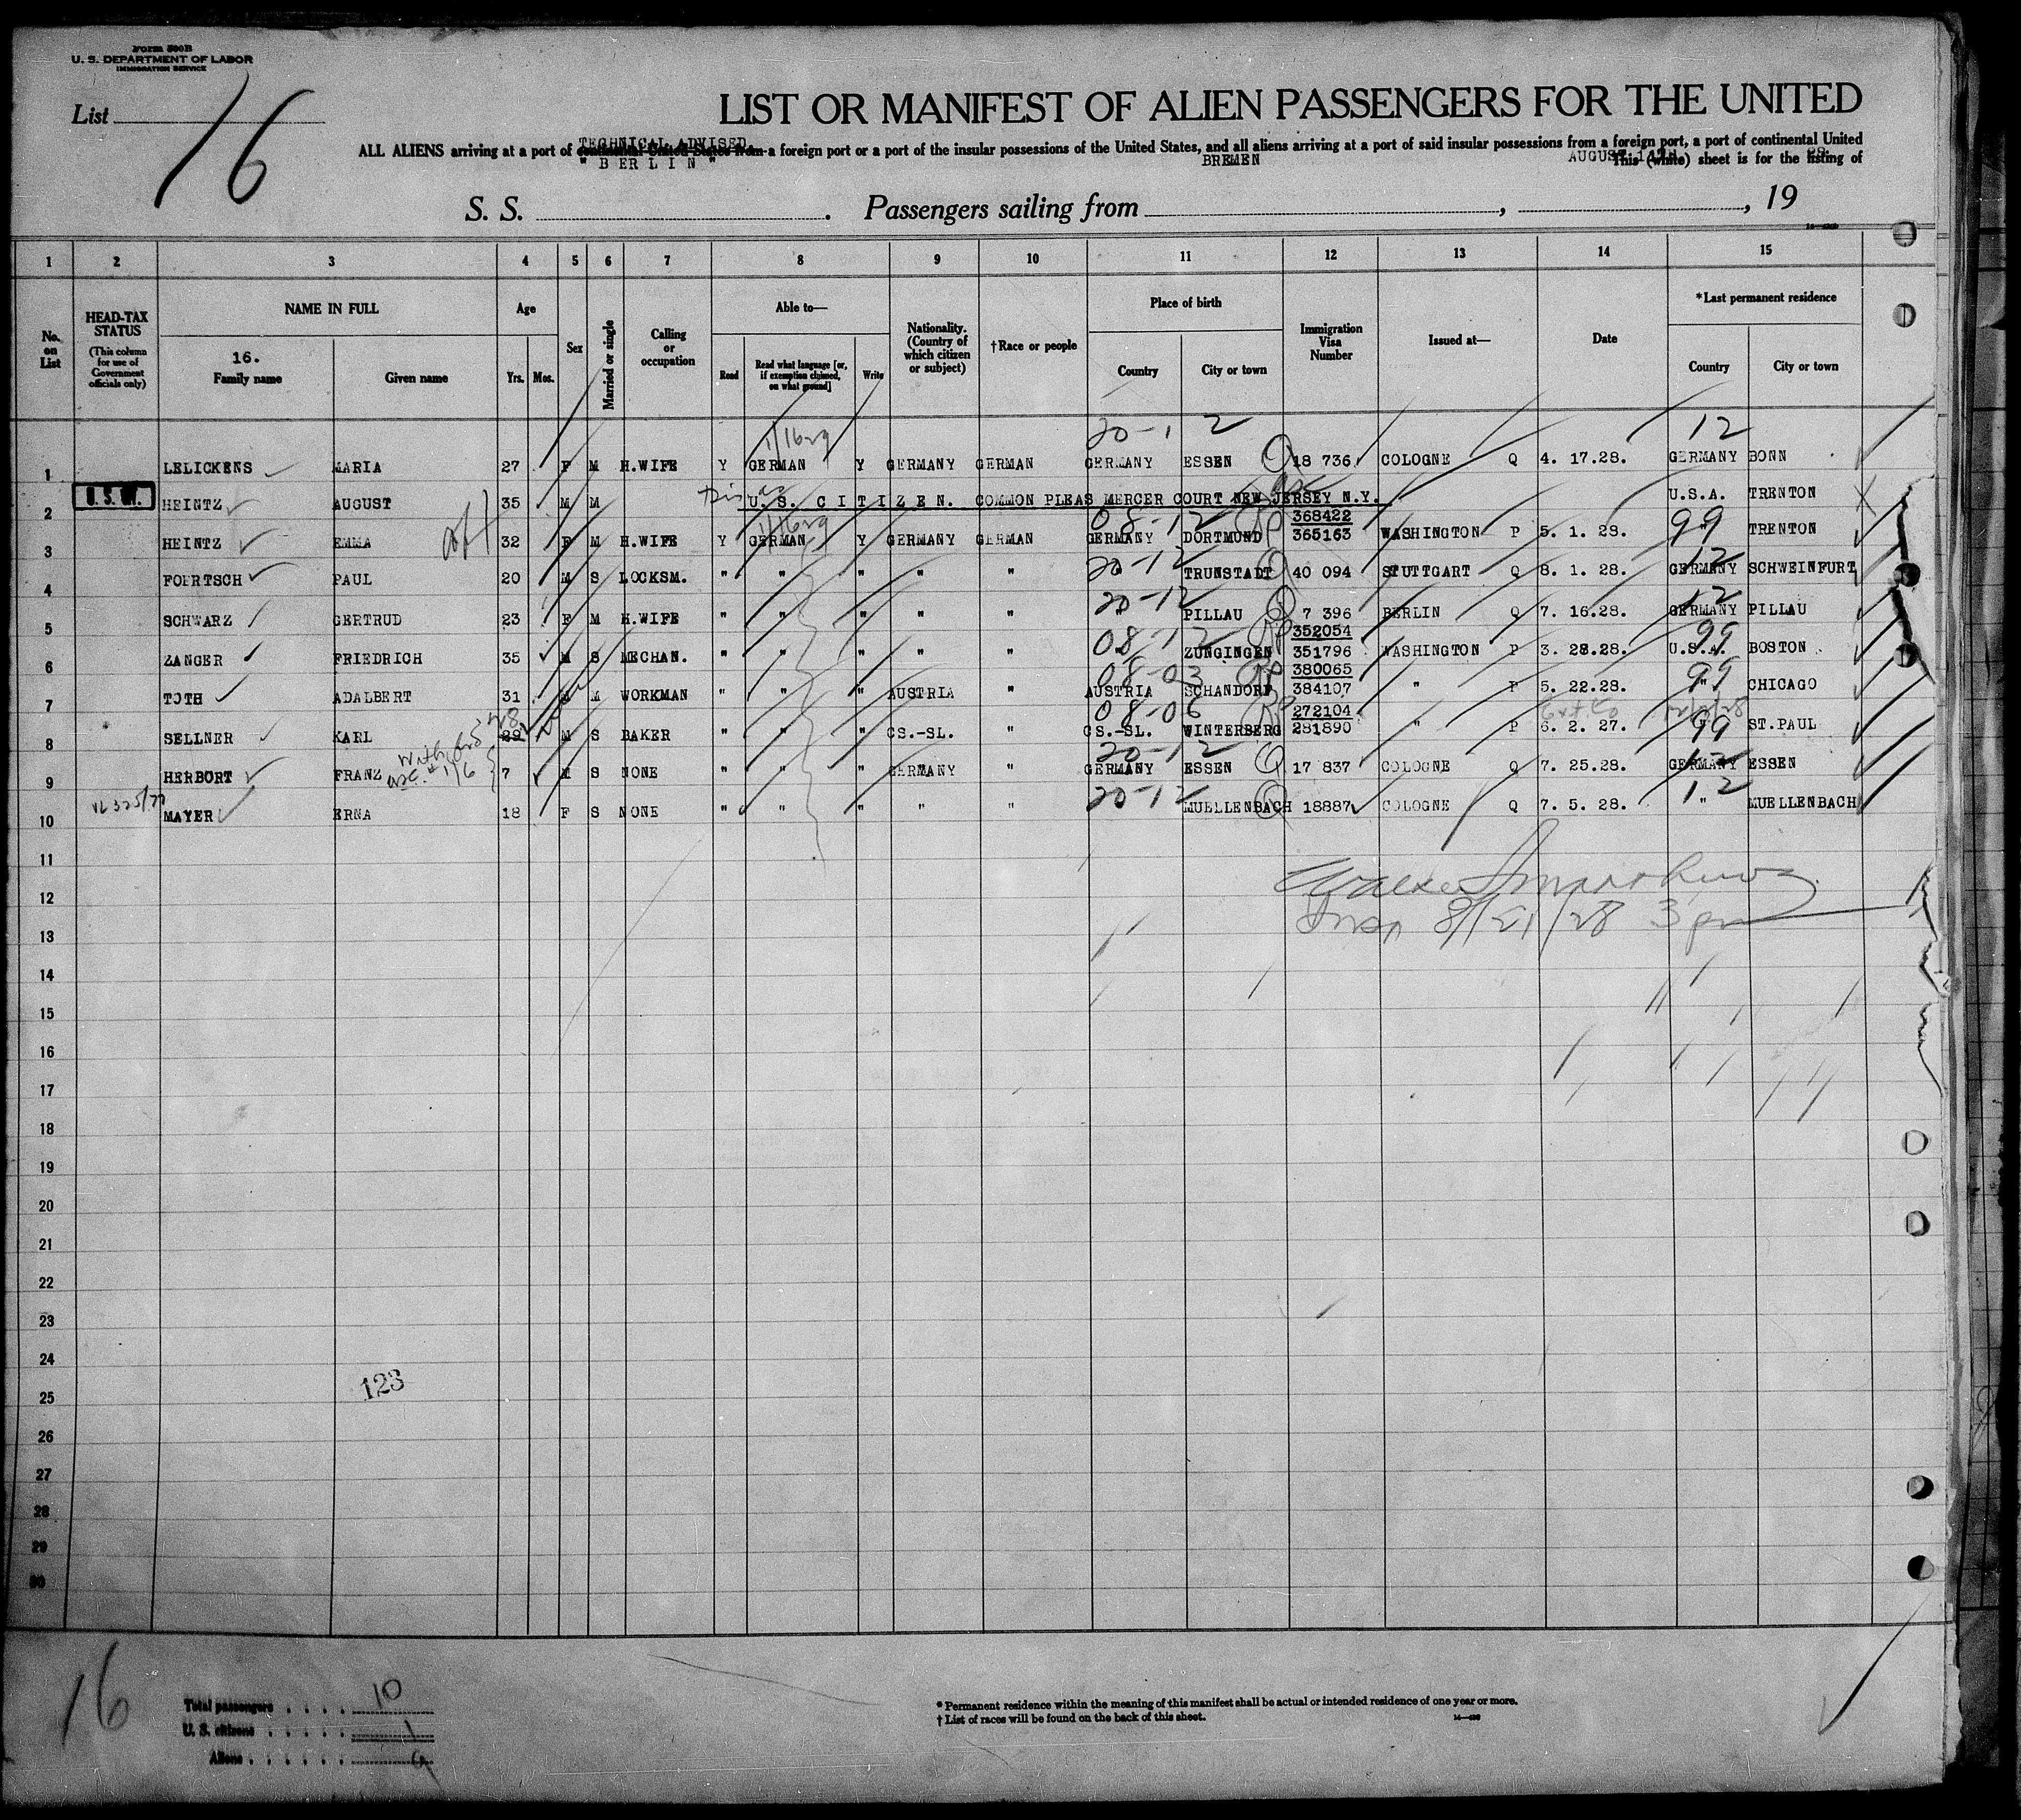 Form 500B
U. S. DEPARTMENT OF LABOR
IMMIGRATION SERVICE
List 16
LIST OR MANIFEST OF ALIEN PASSENGERS FOR THE UNITED
TECHNICAL ADVISED
ALL ALIENS arriving at a port of continental United States from a foreign port or a port of the insular possessions of the United States, and all aliens arriving at a port of said insular possessions from a foreign port, a port of continental United
This (white) sheet is for the listing of
" B E R L I N " BREMEN AUGUST
S. S. . Passengers sailing from , , 19
1 2 3 4 5 6 7 8 9 10 11 12 13 14 15
No. on List
HEAD-TAX STATUS
(This column for use of Government officials only)
NAME IN FULL
16.
Family name Given name
Age
Yrs. Mos.
Sex
Married or single
Calling or occupation
Able to—
Read
Read what language [or, if exemption claimed, on what ground]
Write
Nationality. (Country of which citizen or subject)
†Race or people
Place of birth
Country City or town
Immigration Visa Number
Issued at—
Date
*Last permanent residence
Country City or town
20-12 12
1 LELICKENS MARIA 27 F M H.WIFE Y GERMAN Y GERMANY GERMAN GERMANY ESSEN 18 736 COLOGNE Q 4. 17.28. GERMANY BONN
2 HEINTZ AUGUST 35 M M U.S. C I T I Z E N. COMMON PLEAS MERCER COURT NEW JERSEY N.Y. U.S.A. TRENTON
08-12 368422 99
3 HEINTZ EMMA 32 F M H.WIFE Y GERMAN Y GERMANY GERMAN GERMANY DORTMUND 365163 WASHINGTON P 5. 1. 28. " TRENTON
20-12 12
4 FOERTSCH PAUL 20 M S LOCKSM. " " " " " " TRUNSTADT 40 094 STUTTGART Q 8. 1. 28. GERMANY SCHWEINFURT
20-12 12
5 SCHWARZ GERTRUD 23 F M H.WIFE " " " " " " PILLAU 7 396 BERLIN Q 7. 16.28. GERMANY PILLAU
08-12 352054 99
6 ZANGER FRIEDRICH 35 M S MECHAN. " " " " " " ZUNGINGEN 351796 WASHINGTON P 3. 28.28. U.S.A. BOSTON
08-03 380065 99
7 TOTH ADALBERT 31 M M WORKMAN " " " AUSTRIA " AUSTRIA SCHANDORF 384107 " P 5. 22.28. " CHICAGO
08-06 272104 99
8 SELLNER KARL 29 M S BAKER " " " CS.-SL. " CS.-SL. WINTERBERG 281890 " P 6. 2. 27. " ST.PAUL
20-12 12
9 HERBORT FRANZ 7 M S NONE " " " GERMANY " GERMANY ESSEN 17 837 COLOGNE Q 7. 25.28. GERMANY ESSEN
20-12 12
10 MAYER ERNA 18 F S NONE " " " " " MUELLENBACH 18887 COLOGNE Q 7. 5. 28. " MUELLENBACH
11
12
8/21/28 3 pm
13
14
15
16
17
18
19
20
21
22
23
24
123
25
26
27
28
29
30
16
Total passengers . . . . 10
U. S. citizens . . . . . 1
Aliens . . . . . . 9
* Permanent residence within the meaning of this manifest shall be actual or intended residence of one year or more.
† List of races will be found on the back of this sheet.